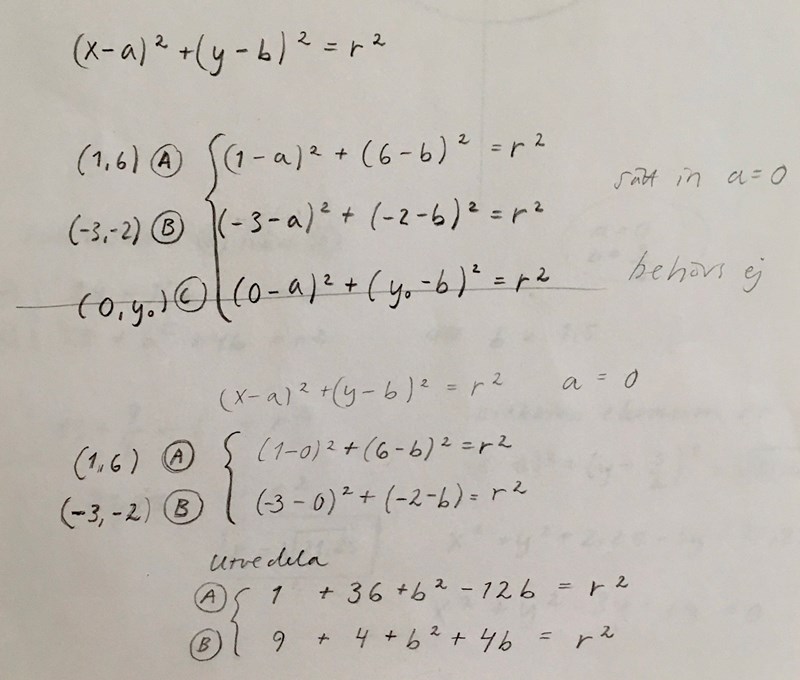 (x-a)² + (y-b)² = r²
(1,6) Ⓐ (1-a)² + (6-b)² = r² sätt in a=0
(-3,-2) Ⓑ (-3-a)² + (-2-b)² = r²
(0,y₀) Ⓒ (0-a)² + (y₀-b)² = r² behövs ej
(x-a)² + (y-b)² = r² a = 0
(1,6) Ⓐ (1-0)² + (6-b)² = r²
(-3,-2) Ⓑ (-3-0)² + (-2-b) = r²
Utvedela
Ⓐ 1 + 36 + b² - 12b = r²
Ⓑ 9 + 4 + b² + 4b = r²